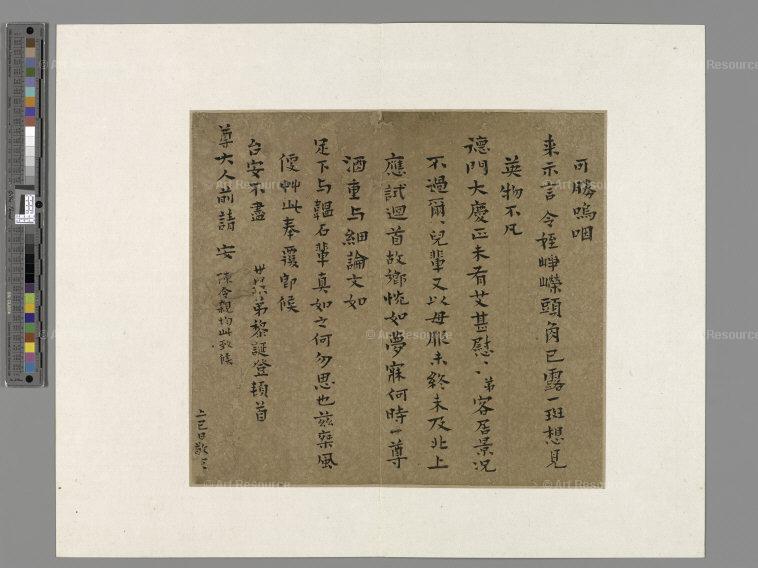 可勝嗚咽
來示言令姪崢嶸頭角已露一斑想見
英物不凡
德門大慶正未有艾甚慰〻弟客居景况
不過爾〻兒輩又以毋服未終未及北上
應試迴首故鄉恍如夢寐何時一尊
酒重与細論文如
足下与韞石輩真如之何勿思也茲乘風
便艸此奉覆卽候
台安不盡 弟黎誕登頓首
尊大人前請安 陳令親均此致候
上巳日敬
Art Resource
Art Resource
Art Resource
Art Resource
Art Resource
Art Resource
Art Resource
Art Resource
Art Resource